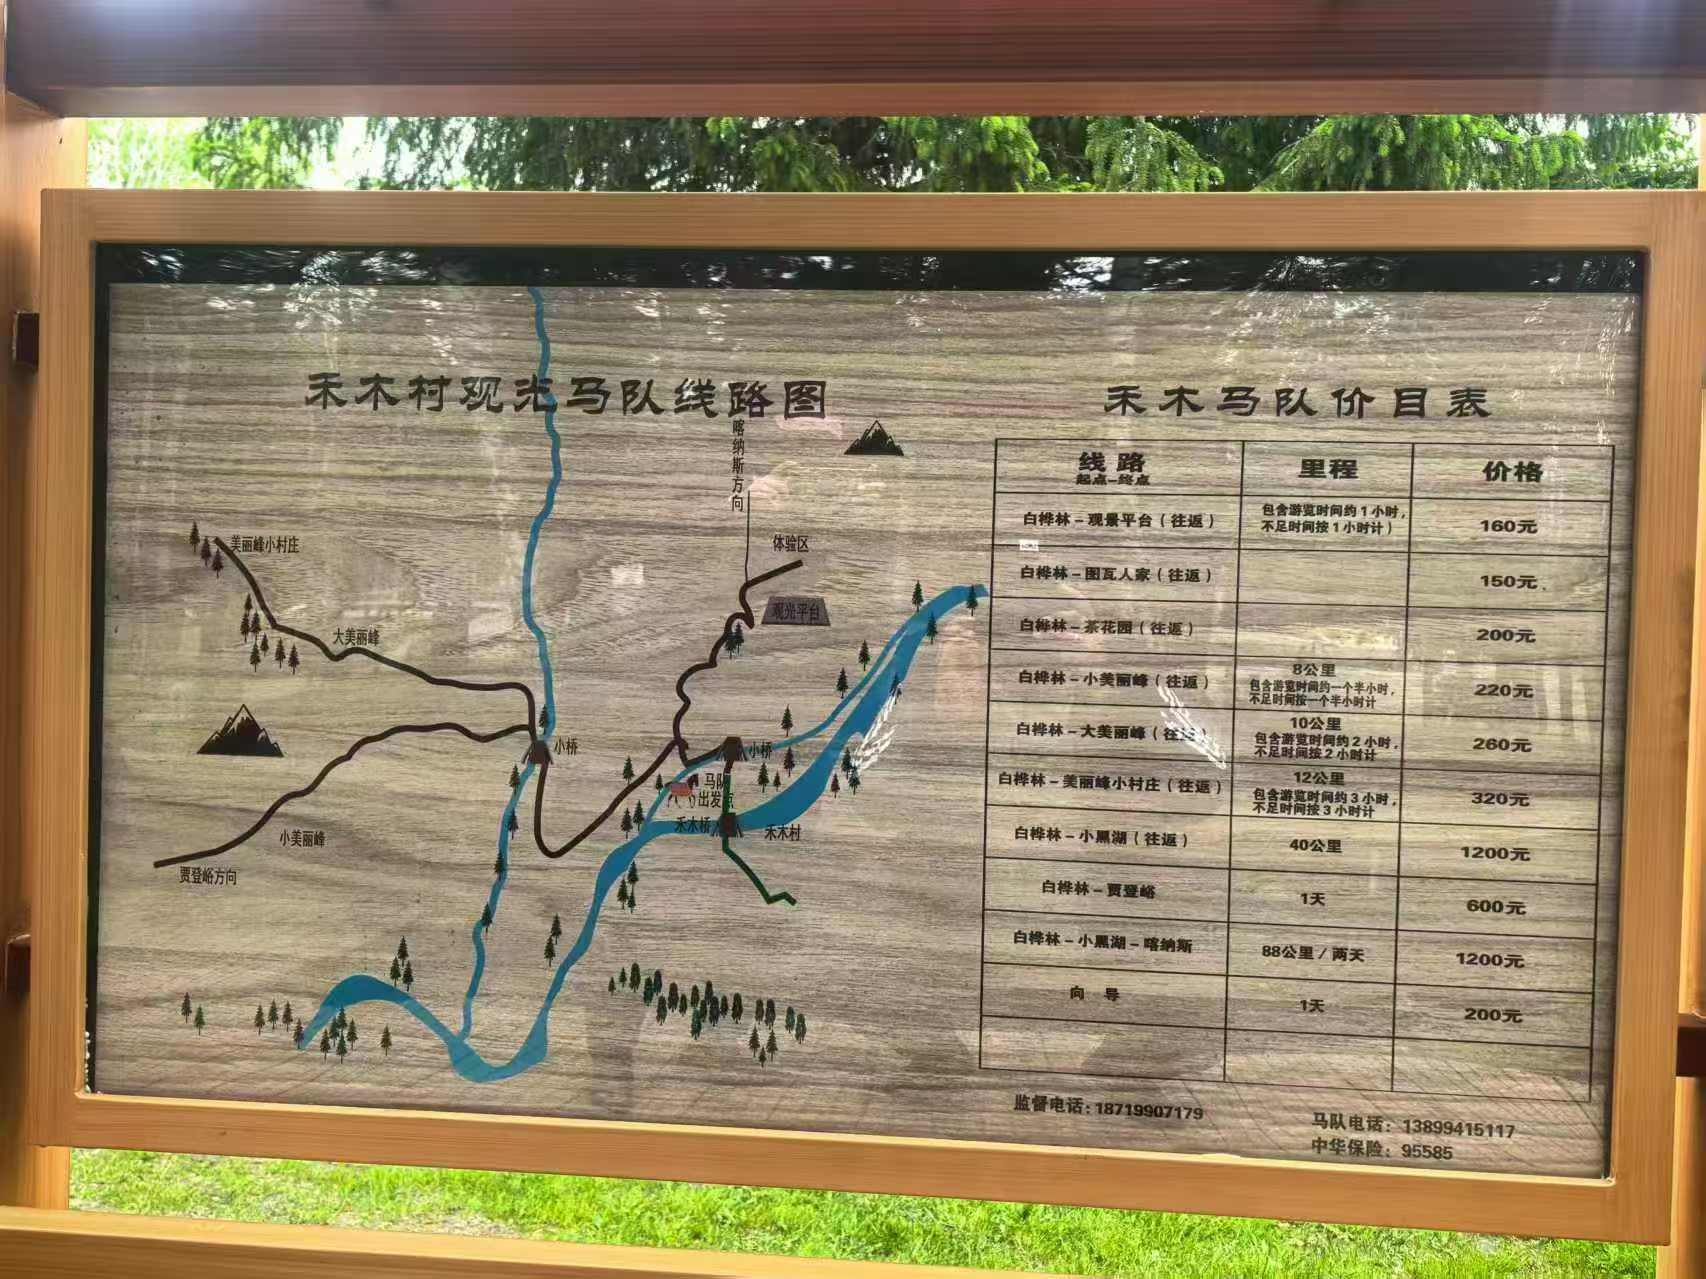 禾木村观光马队线路图
喀纳斯方向
美丽峰小村庄
体验区
观光平台
大美丽峰
小桥
小桥
马队
出发点
禾木桥
禾木村
小美丽峰
贾登峪方向
禾木马队价目表
线路 里程 价格
起点-终点
白桦林-观景平台（往返） 包含游览时间约1小时， 160元
不足时间按1小时计）
白桦林-图瓦人家（往返） 150元
白桦林-茶花园（往返） 200元
白桦林-小美丽峰（往返） 8公里 220元
包含游览时间约一个半小时，
不足时间按一个半小时计
白桦林-大美丽峰（往返） 10公里 260元
包含游览时间约2小时，
不足时间按2小时计
白桦林-美丽峰小村庄（往返） 12公里 320元
包含游览时间约3小时，
不足时间按3小时计
白桦林-小黑湖（往返） 40公里 1200元
白桦林-贾登峪 1天 600元
白桦林-小黑湖-喀纳斯 88公里/两天 1200元
向 导 1天 200元
监督电话：18719907179
马队电话：13899415117
中华保险：95585